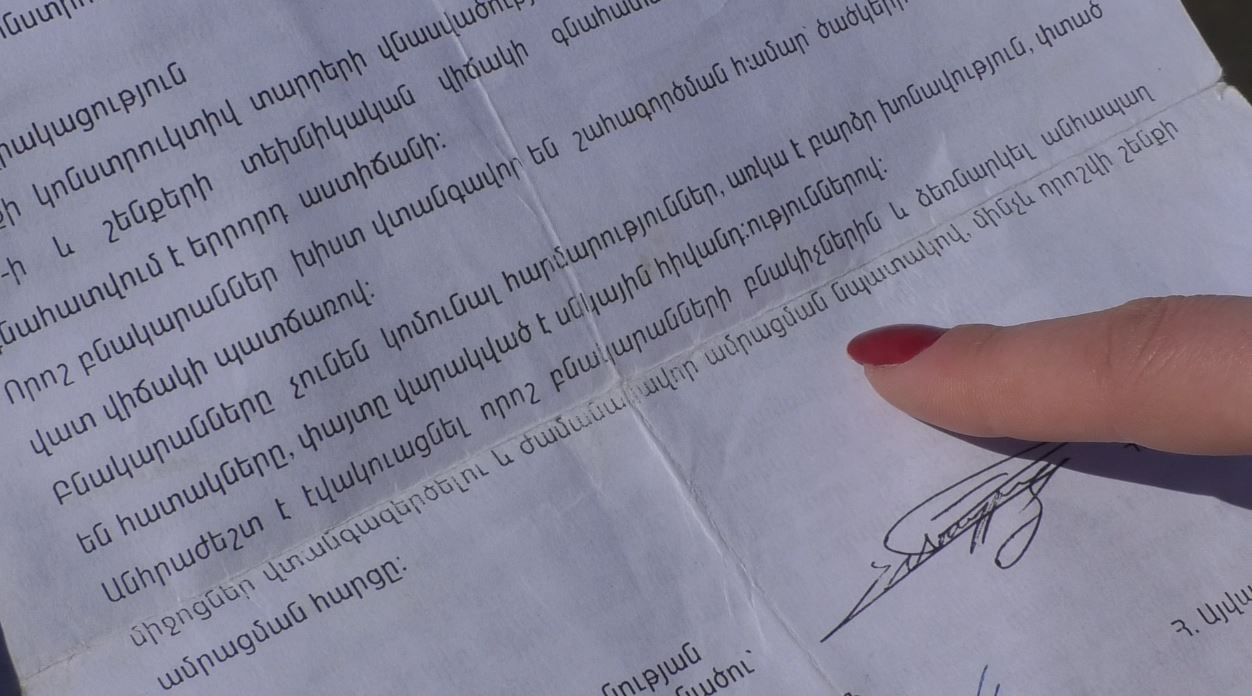 րակացություն
կոնստրուկտիվ տարրերի վնասվածությ
-ի և շենքերի տեխնիկական վիճակի գնահատ
նահատվում է երրորդ աստիճանի:
Որոշ բնակարաններ խիստ վտանգավոր են շահագործման համար՝ ծածկերի
վատ վիճակի պատճառով:
Բնակարանները չունեն կոմունալ հարմարություններ, առկա է բարձր խոնավություն, փտած
են հատակները, փայտը վարակված է սնկային հիվանդություններով:
Անհրաժեշտ է էվակուացնել որոշ բնակարանների բնակիչներին և ձեռնարկել անհապաղ
միջոցներ վտանգազերծելու և ժամանակավոր ամրացման նպատակով, մինչև որոշվի շենքի
ամրացման հարցը:
ության
նածու՝
Հ. Այվա